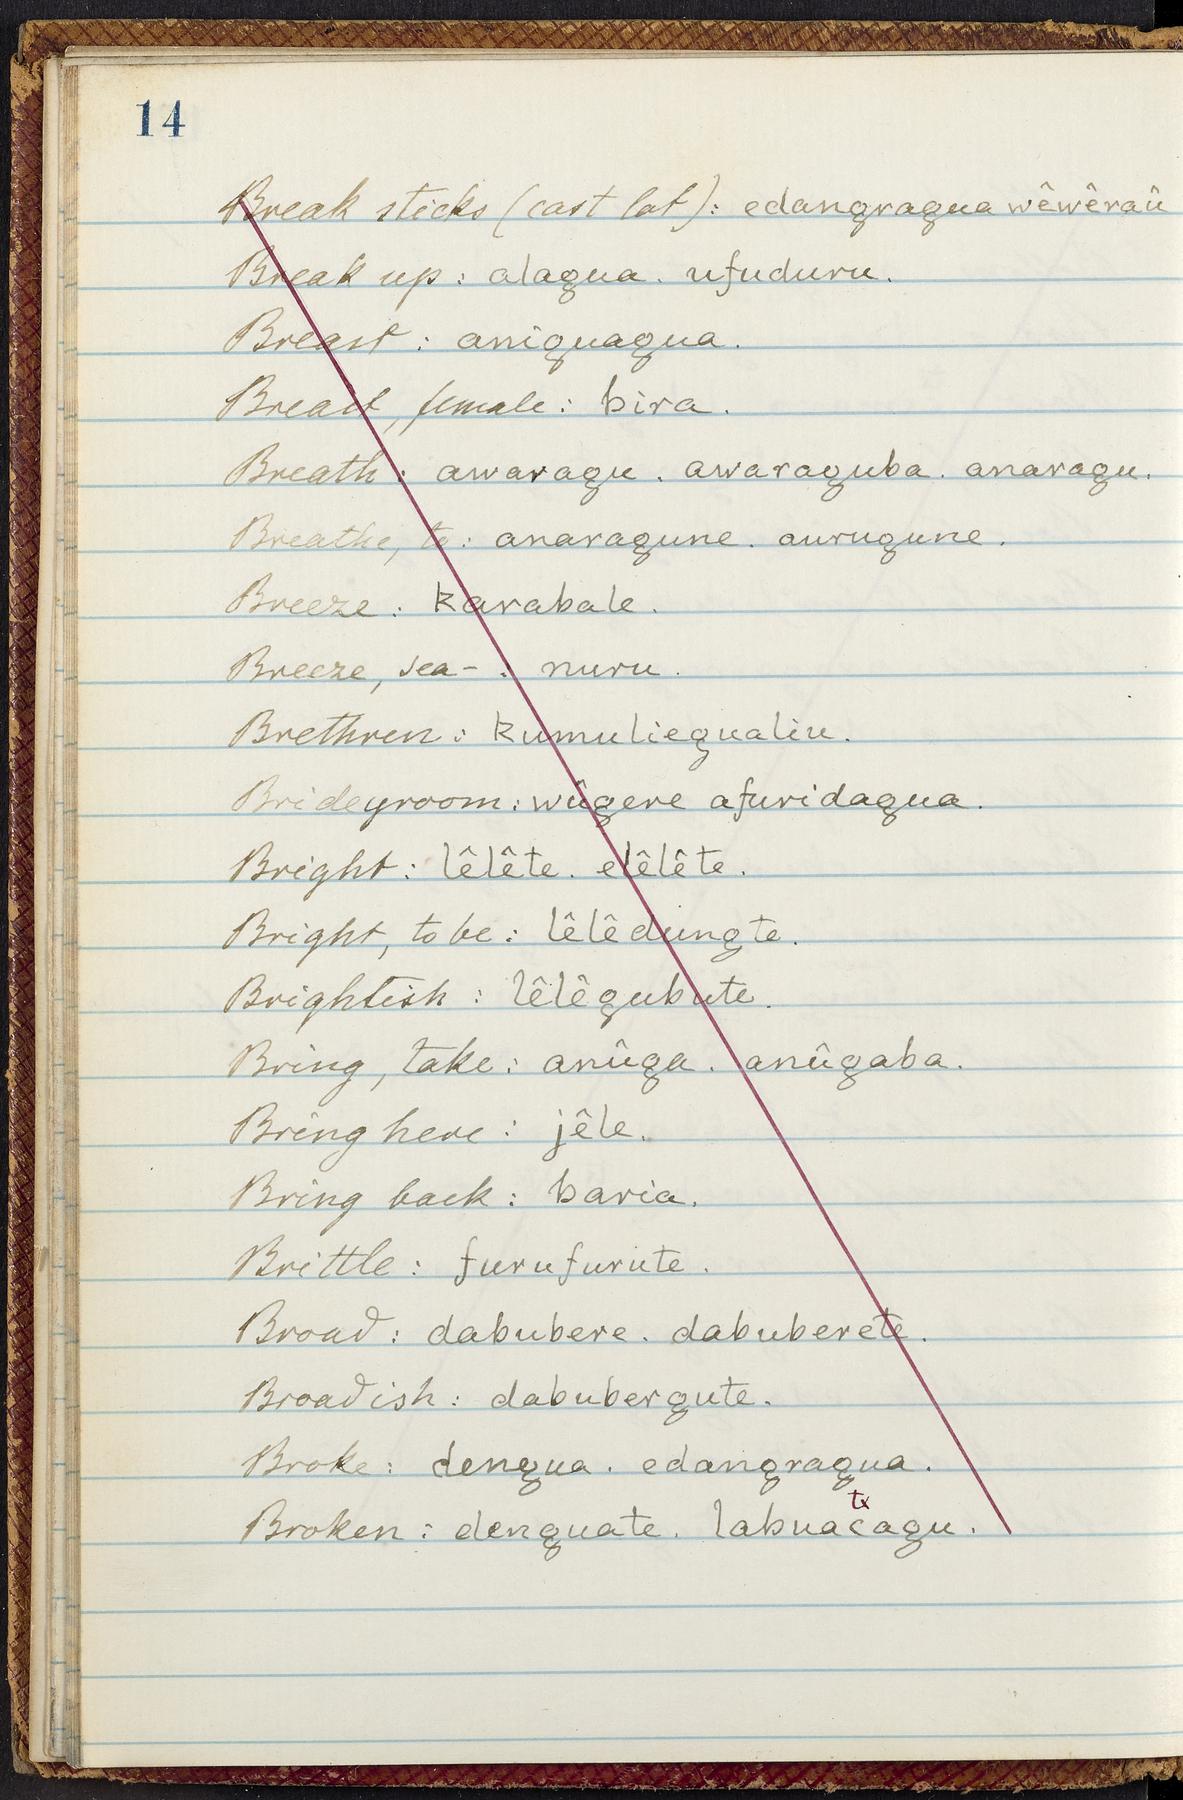 14
Break sticks (cast lot): edangragua wêwêraû
Break up: alagua. ufuduru.
Breast: aniguagua.
Breast, female: bira.
Breath: awaragu. awaraguba. anaragu.
Breathe, to: anaragune. aurugune.
Breeze: karabale.
Breeze, sea-: nuru.
Brethren: kumuliegualiu.
Bridegroom: wûgere afuridagua.
Bright: lêlête. elêlête.
Bright, to be: lêlêdungte.
Brightish: lêlêgubute.
Bring, take: anûga. anûgaba.
Bring here: jêle.
Bring back: baria.
Brittle: furufurute.
Broad: dabubere. dabuberete.
Broadish: dabubergute.
Broke: dengua. edangragua.
tx
Broken: denguate. labuacagu.